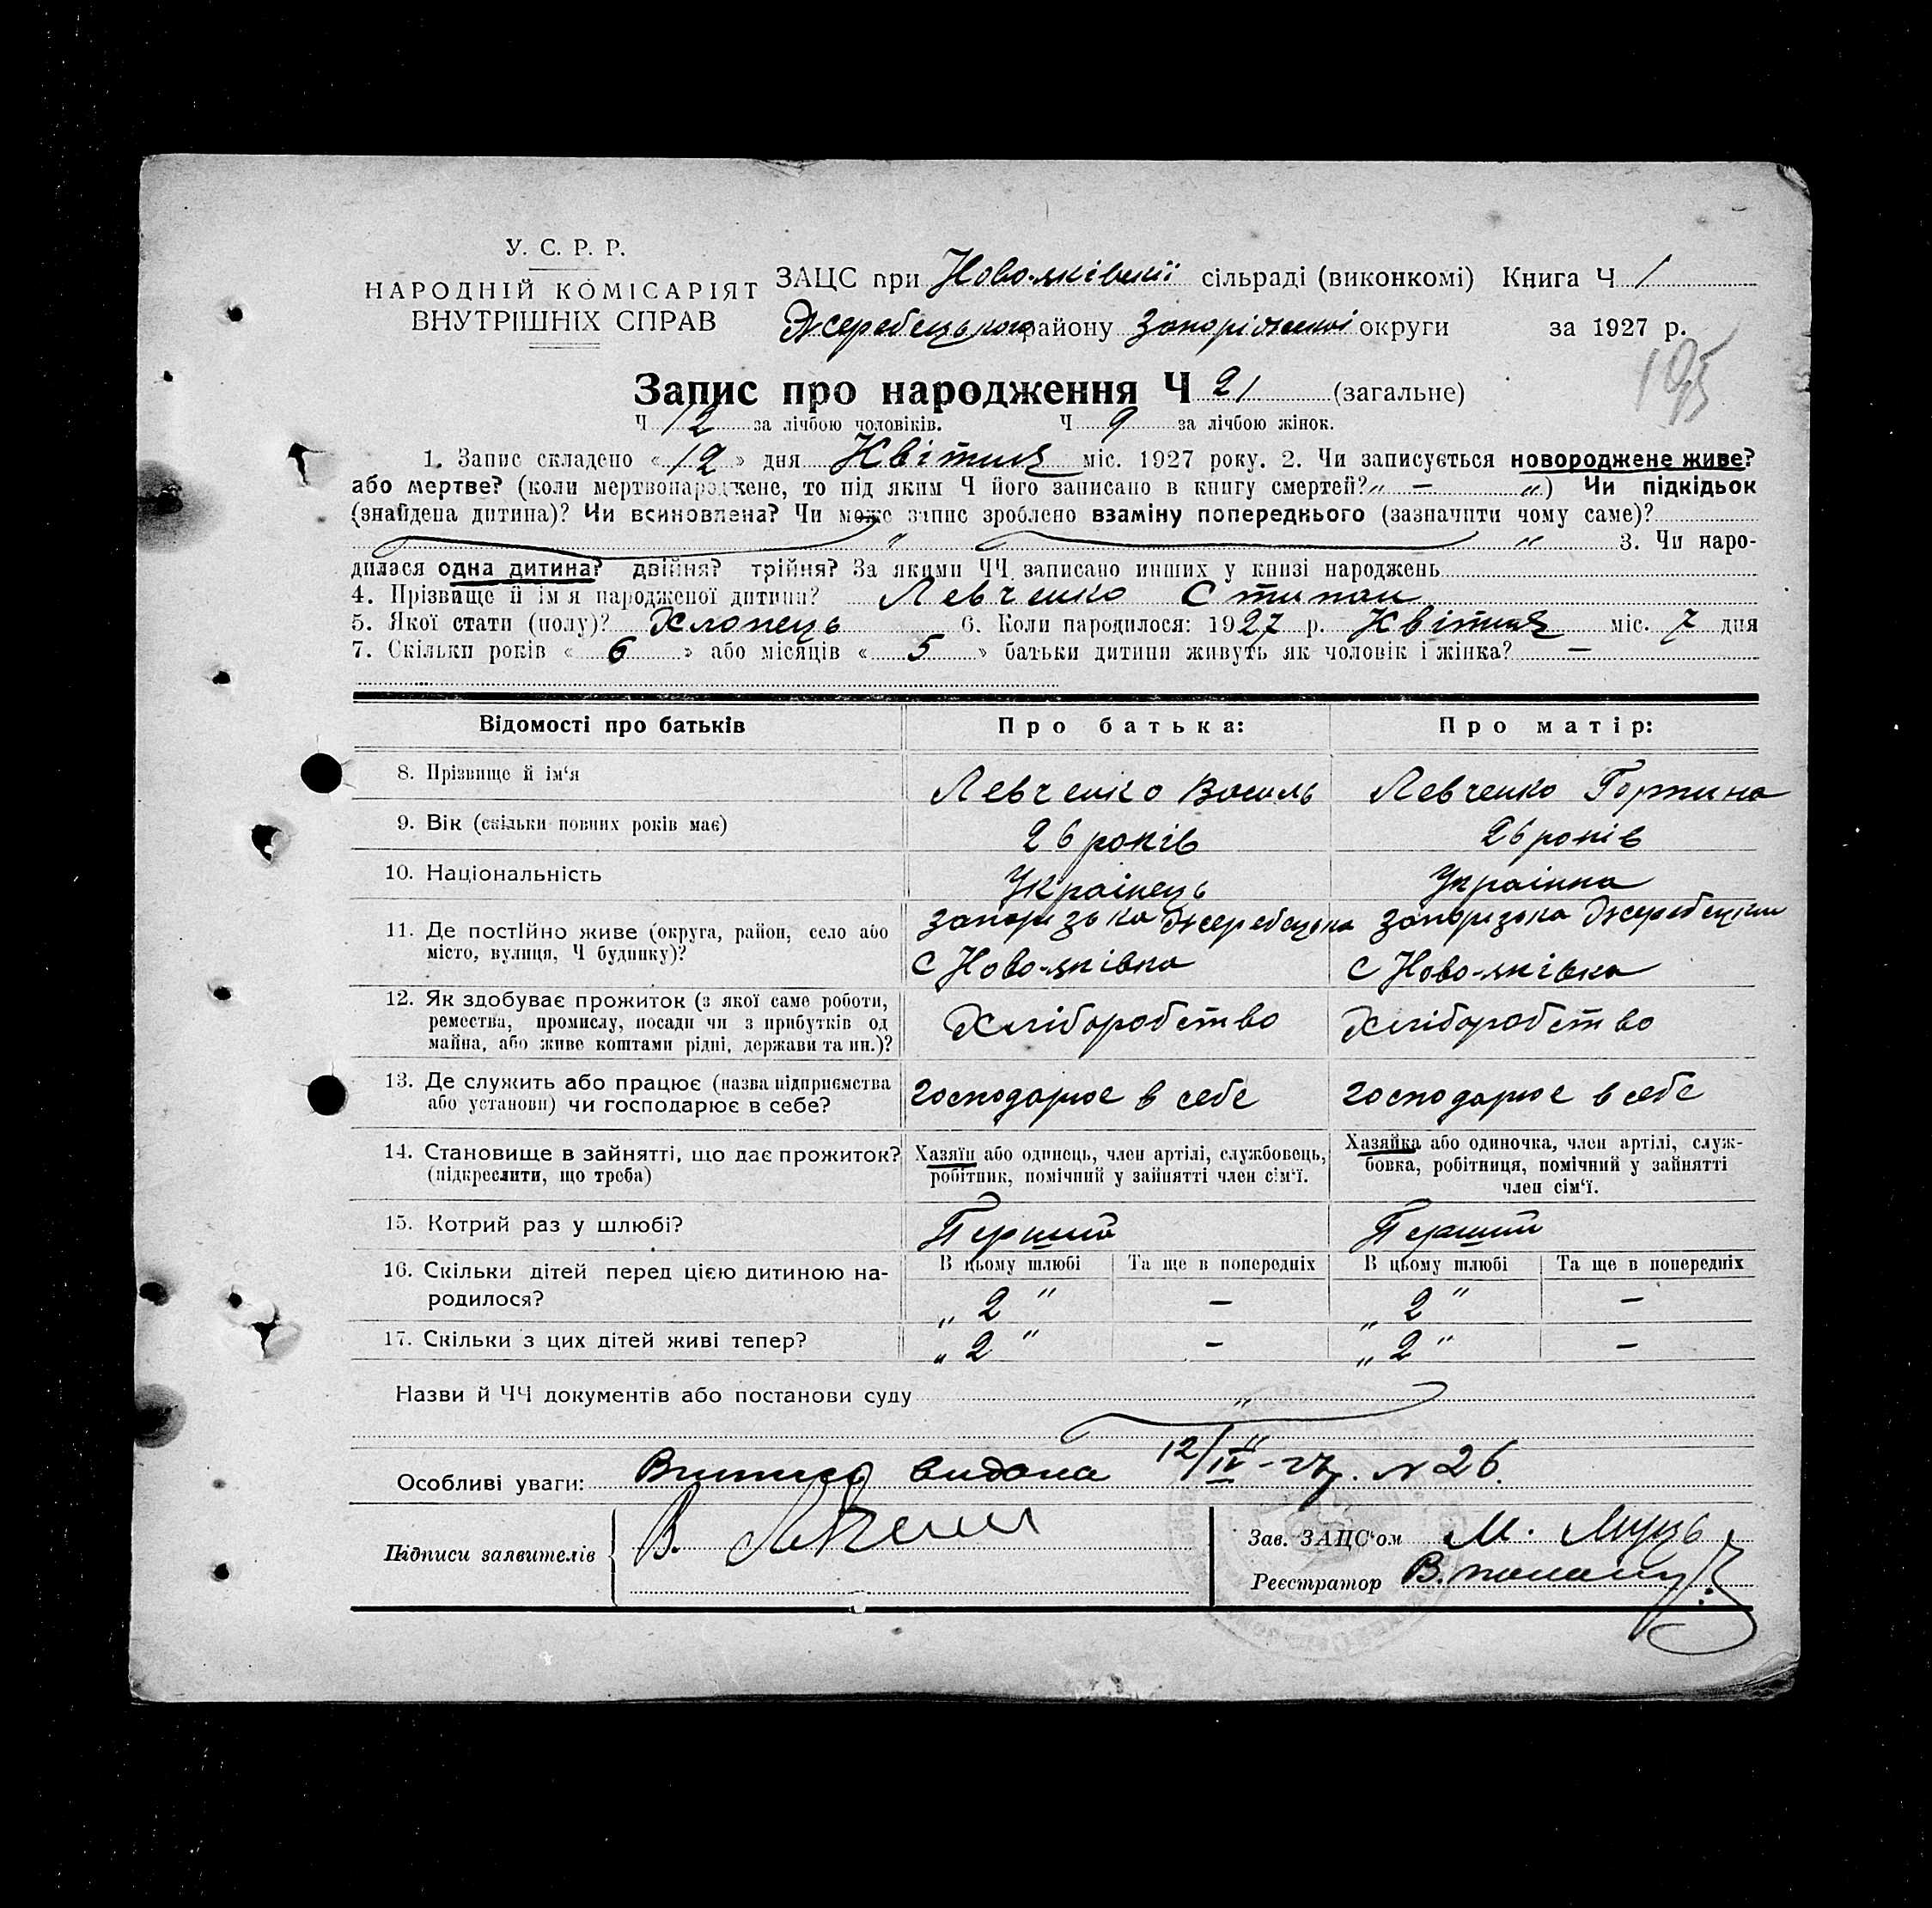 У. С. Р. Р.
НАРОДНІЙ КОМІСАРІЯТ
ВНУТРІШНІХ СПРАВ
ЗАЦС при Ново-яківській сільраді (виконкомі) Книга Ч 1
Жеребецького району Запоріжської округи за 1927 р.
195
Запис про народження Ч 21 (загальне)
Ч 12 за лічбою чоловіків. Ч 9 за лічбою жінок.
1. Запис складено « 12 » дня Квітня міс. 1927 року. 2. Чи записується новороджене живе?
або мертве? (коли мертвонароджене, то під яким Ч його записано в книгу смертей? „ — „) Чи підкідьок
(знайдена дитина)? Чи всиновлена? Чи може запис зроблено взаміну попереднього (зазначити чому саме)?
„ „ 3. Чи наро-
дилася одна дитина? двійня? трійня? За якими ЧЧ записано инших у книзі народжень
4. Прізвище й ім'я народженої дитини? Левченко Стипан
5. Якої стати (полу)? Хлопець 6. Коли народилося: 1927 р. Квітня міс. 7 дня
7. Скільки років « 6 » або місяців « 5 » батьки дитини живуть як чоловік і жінка? —
Відомості про батьків Про батька: Про матір:
8. Прізвище й ім'я Левченко Василь Левченко Горпина
9. Вік (скільки повних років має) 26 років 26 років
10. Національність Українець Українка
11. Де постійно живе (округа, район, село або місто, вулиця, Ч будинку)? Запоризька Жеребецька Запоризька Жеребецький
С Ново-яківка С Ново-яківка
12. Як здобуває прожиток (з якої саме роботи,
ремества, промислу, посади чи з прибутків од
майна, або живе коштами рідні, держави та ин.)? Хліборобство Хліборобство
13. Де служить або працює (назва підприємства
або установи) чи господарює в себе? господарює в себе господарює в себе
14. Становище в зайнятті, що дає прожиток?
(підкреслити, що треба)
Хазяїн або одинець, член артілі, службовець,
робітник, помічний у зайнятті член сім'ї.
Хазяйка або одиночка, член артілі, служ-
бовка, робітниця, помічний у зайнятті
член сім'ї.
15. Котрий раз у шлюбі? Перший Перший
В цьому шлюбі Та ще в попередніх В цьому шлюбі Та ще в попередніх
16. Скільки дітей перед цією дитиною на-
родилося? „ 2 " — „ 2 " —
17. Скільки з цих дітей живі тепер? „ 2 " — „ 2 " —
Назви й ЧЧ документів або постанови суду „
Особливі уваги: Випись видана 12/IV-27р. N 26.
Підписи заявителів В.
Зав. ЗАЦС'ом М.
Реєстратор В.